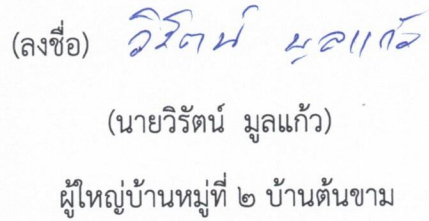 (ลงชื่อ) วิรัตน์ มูลแก้ว
(นายวิรัตน์ มูลแก้ว)
ผู้ใหญ่บ้านหมู่ที่ ๒ บ้านต้นขาม